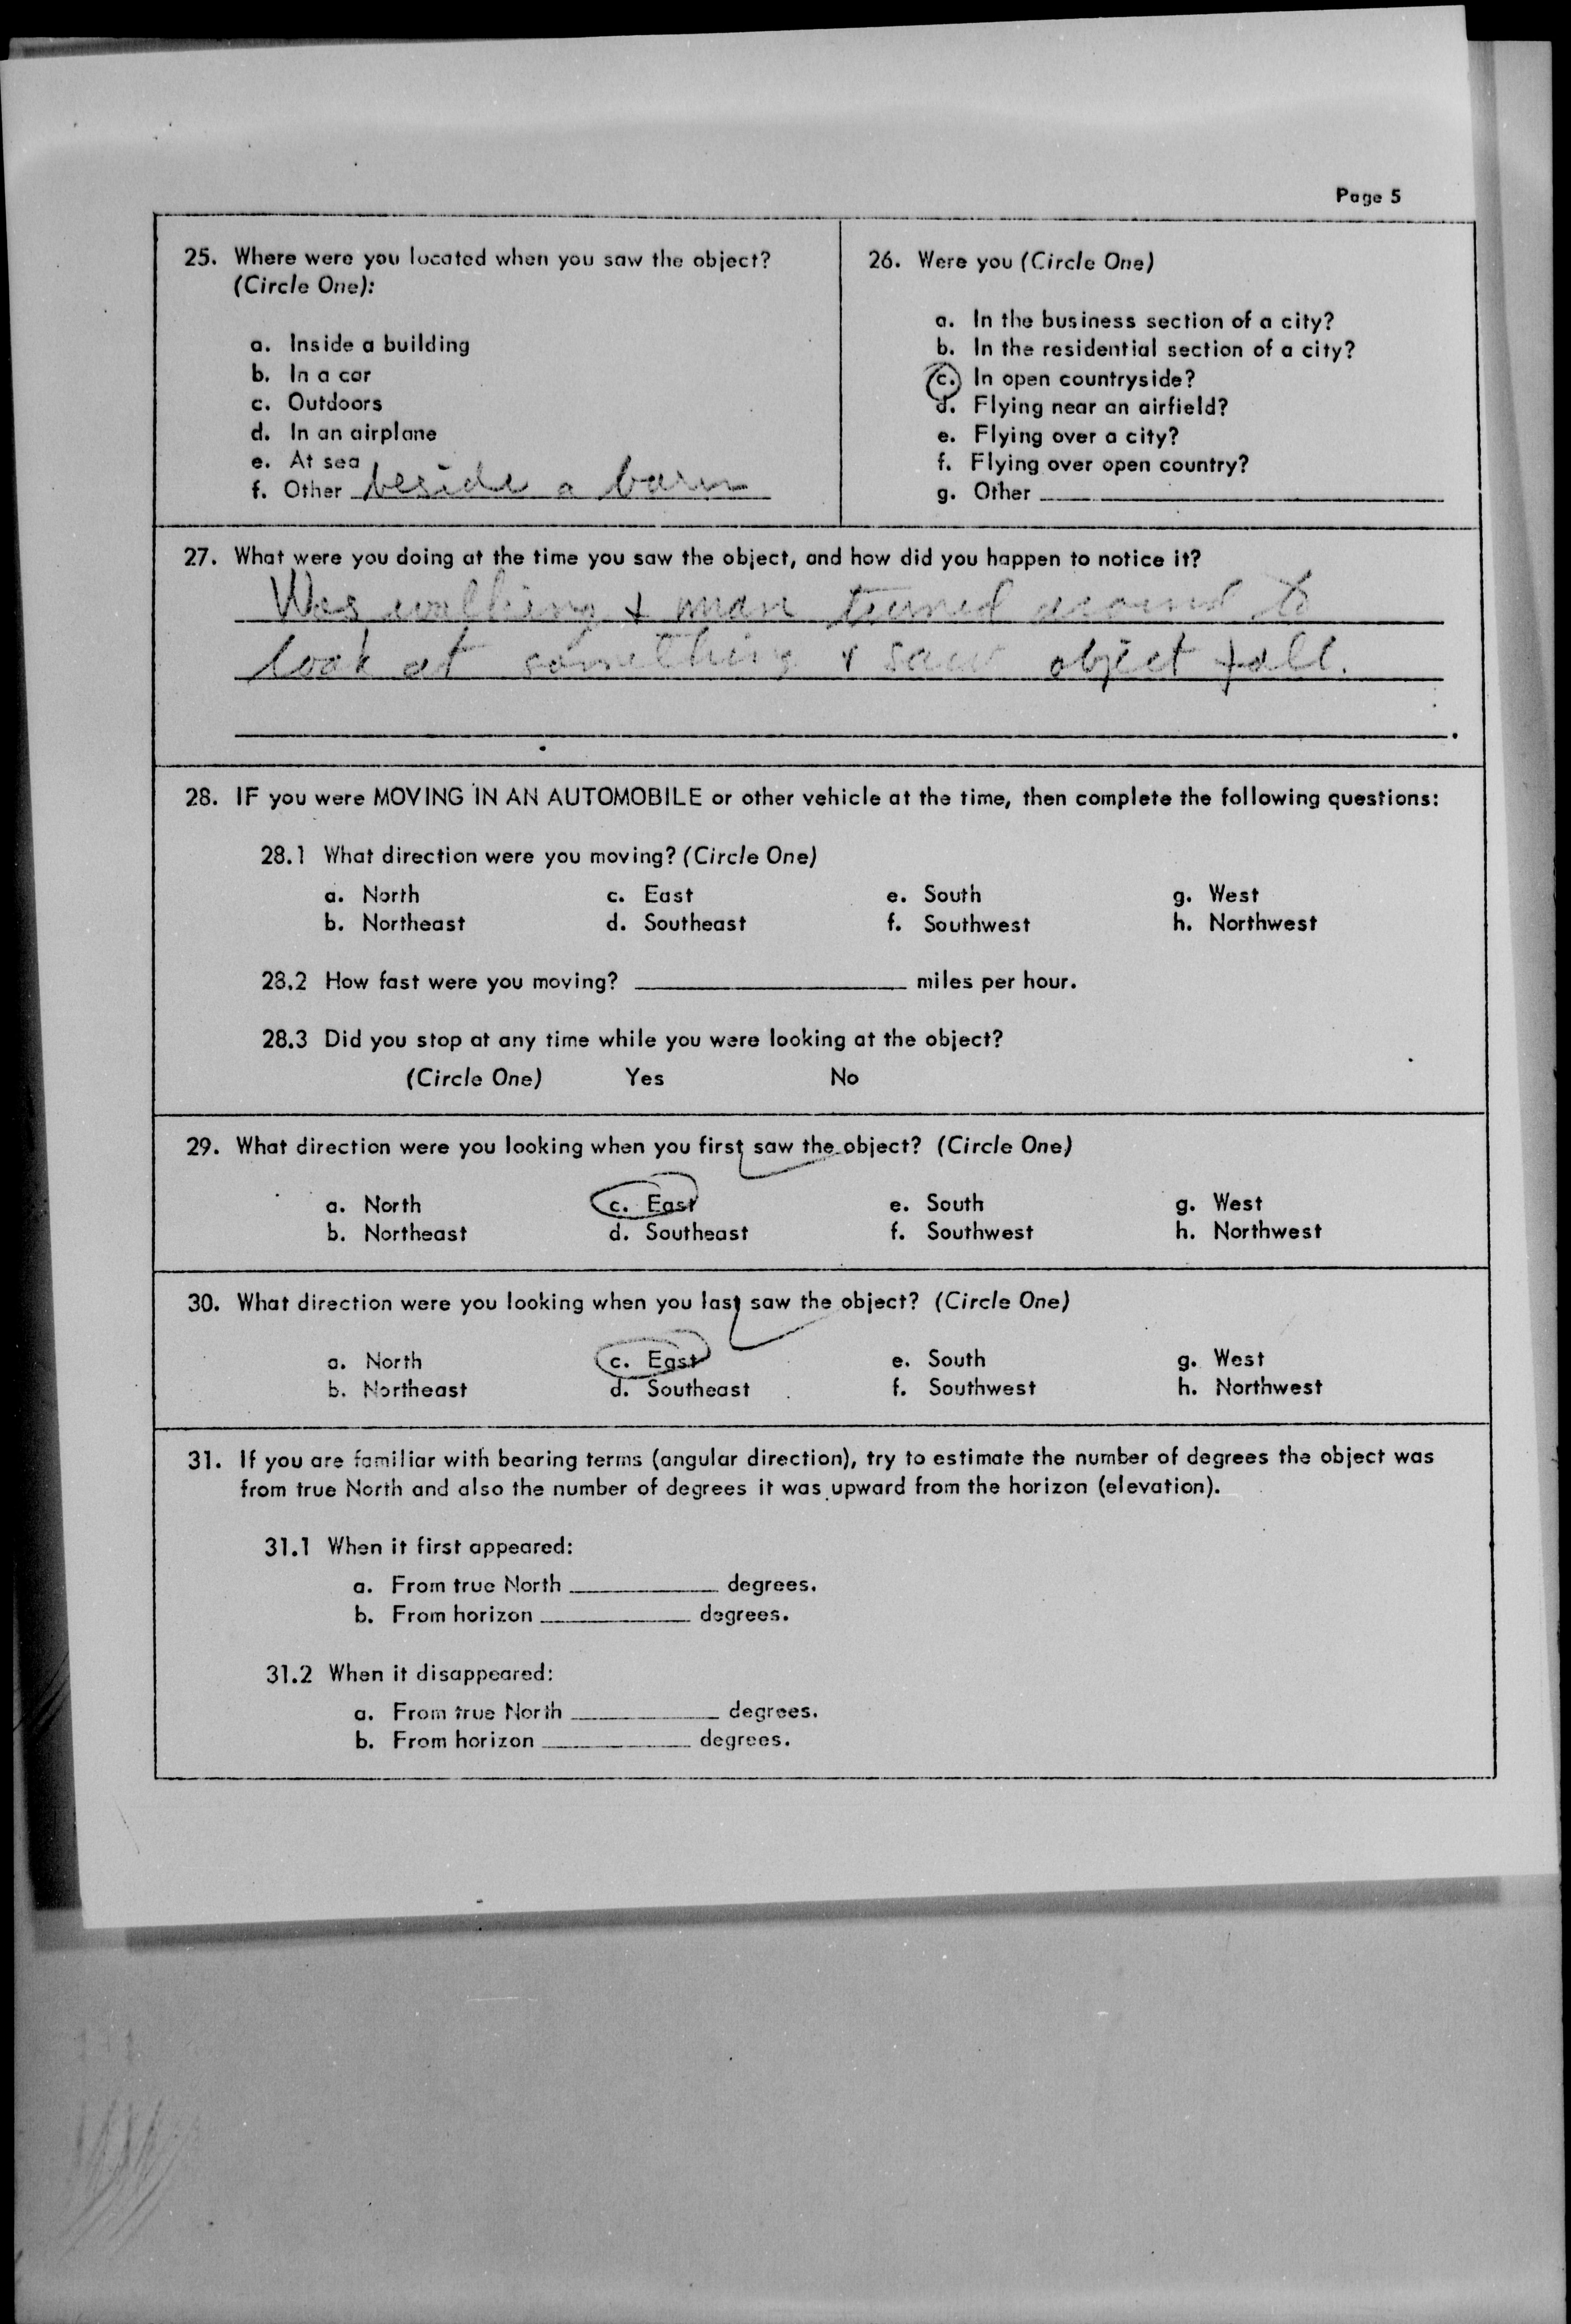 Page 5
25. Where were you located when you saw the object?
(Circle One):
a. Inside a building
b. In a car
c. Outdoors
d. In an airplane
e. At sea
f. Other beside a barn
26. Were you (Circle One)
a. In the business section of a city?
b. In the residential section of a city?
c. In open countryside?
d. Flying near an airfield?
e. Flying over a city?
f. Flying over open country?
g. Other
27. What were you doing at the time you saw the object, and how did you happen to notice it?
Was walking & man turned around to
look at something & saw object fall.
28. IF you were MOVING IN AN AUTOMOBILE or other vehicle at the time, then complete the following questions:
28.1 What direction were you moving? (Circle One)
a. North c. East e. South g. West
b. Northeast d. Southeast f. Southwest h. Northwest
28.2 How fast were you moving? miles per hour.
28.3 Did you stop at any time while you were looking at the object?
(Circle One) Yes No
29. What direction were you looking when you first saw the object? (Circle One)
a. North c. East e. South g. West
b. Northeast d. Southeast f. Southwest h. Northwest
30. What direction were you looking when you last saw the object? (Circle One)
a. North c. East e. South g. West
b. Northeast d. Southeast f. Southwest h. Northwest
31. If you are familiar with bearing terms (angular direction), try to estimate the number of degrees the object was
from true North and also the number of degrees it was upward from the horizon (elevation).
31.1 When it first appeared:
a. From true North degrees.
b. From horizon degrees.
31.2 When it disappeared:
a. From true North degrees.
b. From horizon degrees.